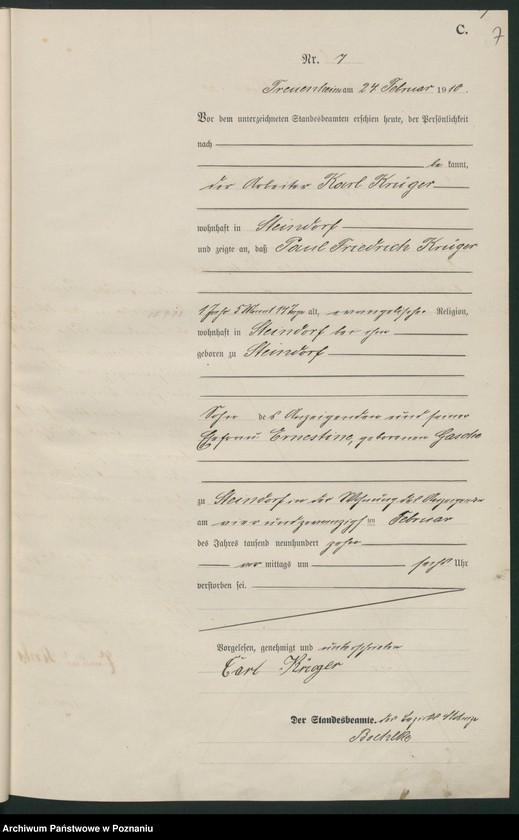 C.
7
Nr. 7
Treuenheim am 24 Februar 1910.
Vor dem unterzeichneten Standesbeamten erschien heute, der Persönlichkeit
nach
be kannt,
der Arbeiter Karl Krüger
wohnhaft in Steindorf
und zeigte an, daß Paul Friedrich Krüger
1 Jahr 5 Monat 14 Tage alt, evangelischer Religion,
wohnhaft in Steindorf bei ihm
geboren zu Steindorf
Sohn des Anzeigenden und seiner
Ehefrau Ernestine, geborenen
zu Steindorf in der Wohnung des Anzeigenden
am vier und zwanzigsten Februar
des Jahres tausend neunhundert zehn
vor mittags um sechs Uhr
verstorben sei.
Vorgelesen, genehmigt und unterschrieben
Carl Krüger
Der Standesbeamte.
Archiwum Państwowe w Poznaniu